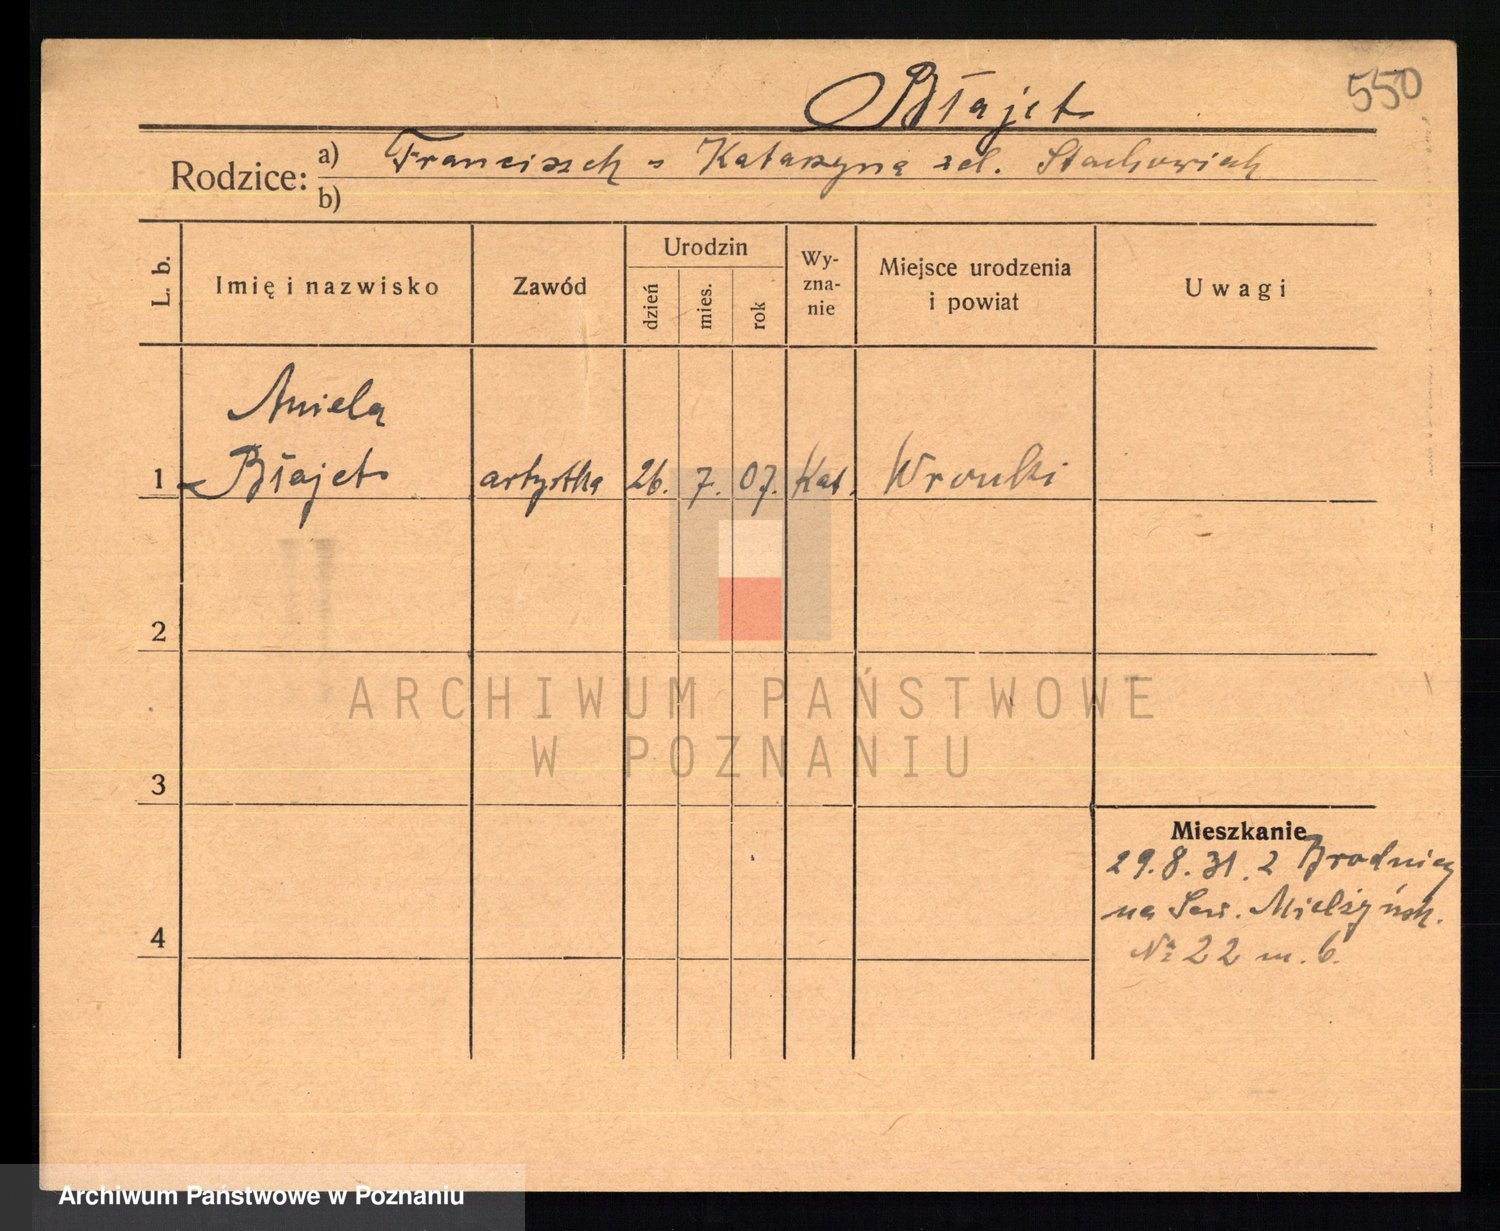 Błajet
550
Rodzice: a) Franciszek - Katarzyna zd. Stachowiak
b)
L. b.
Imię i nazwisko
Zawód
Urodzin
dzień
mies.
rok
Wy-
zna-
nie
Miejsce urodzenia
i powiat
Uwagi
Aniela
1 Błajet artystka 26. 7. 07. Kat. Wronki
2
ARCHIWUM PAŃSTWOWE
W POZNANIU
3
Mieszkanie
29.8.31. z Brodnicy
na Sew. Mielżyńsk.
4
№ 22 m. 6.
Archiwum Państwowe w Poznaniu